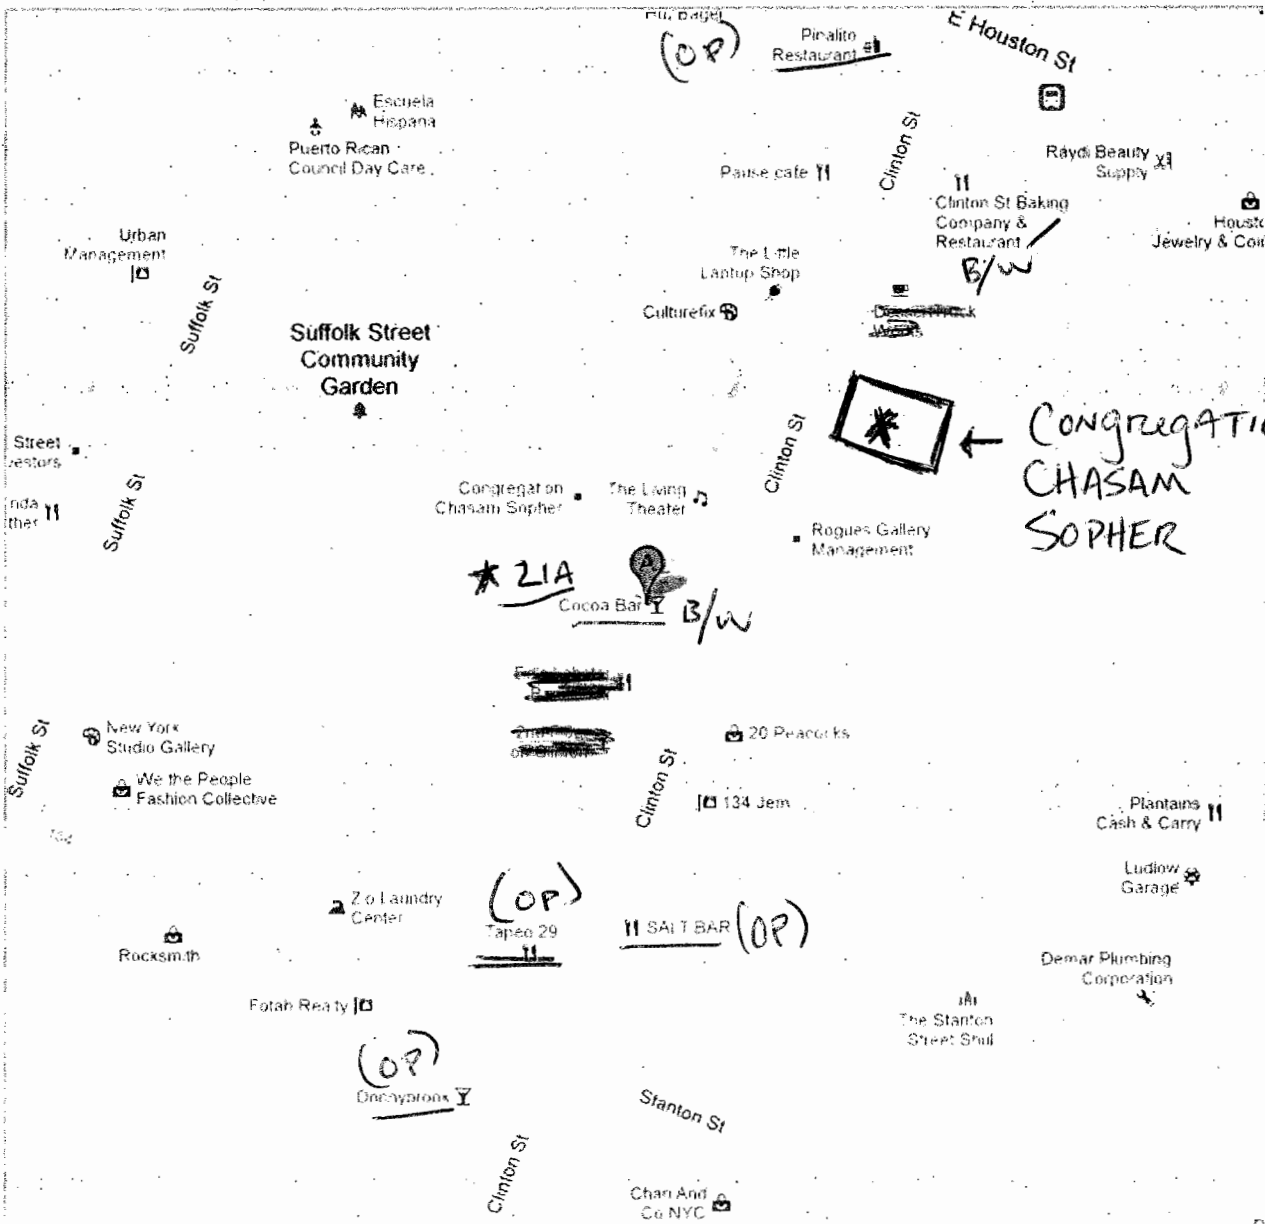 (OP)
Pinalito
Restaurant
E Houston St
Escuela
Hispana
Puerto Rican
Council Day Care
Pause cafe
Clinton St
Raydi Beauty
Supply
Clinton St Baking
Company &
Restaurant
B/W
Houst
Jewelry & Coi
Urban
Management
The Little
Laptop Shop
Culturefix
Suffolk St
Suffolk Street
Community
Garden
Clinton St
CONGREGATI
CHASAM
SOPHER
Street
vestors
Suffolk St
nda
ther
Congregation
Chasam Sopher
The Living
Theater
Rogues Gallery
Management
* 21A
A
Cocoa Bar
B/W
New York
Studio Gallery
Suffolk St
We the People
Fashion Collective
20 Peacocks
Clinton St
134 Jem
Plantains
Cash & Carry
Ludlow
Garage
Zio Laundry
Center
(OP)
Tapeo 29
SALT BAR (OP)
Rocksmith
Demar Plumbing
Corporation
Fotah Realty
The Stanton
Street Shul
(OP)
Donnybrook
Stanton St
Clinton St
Chan And
Co NYC